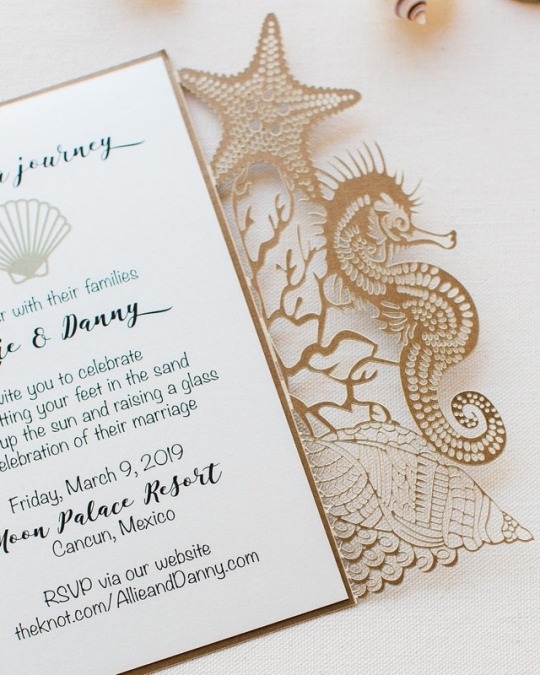 journey
with their families
& Danny
you to celebrate
your feet in the sand
up the sun and raising a glass
of their marriage
Friday, March 9, 2019
Moon Palace Resort
Cancun, Mexico
RSVP via our website
theknot.com/AllieandDanny.com